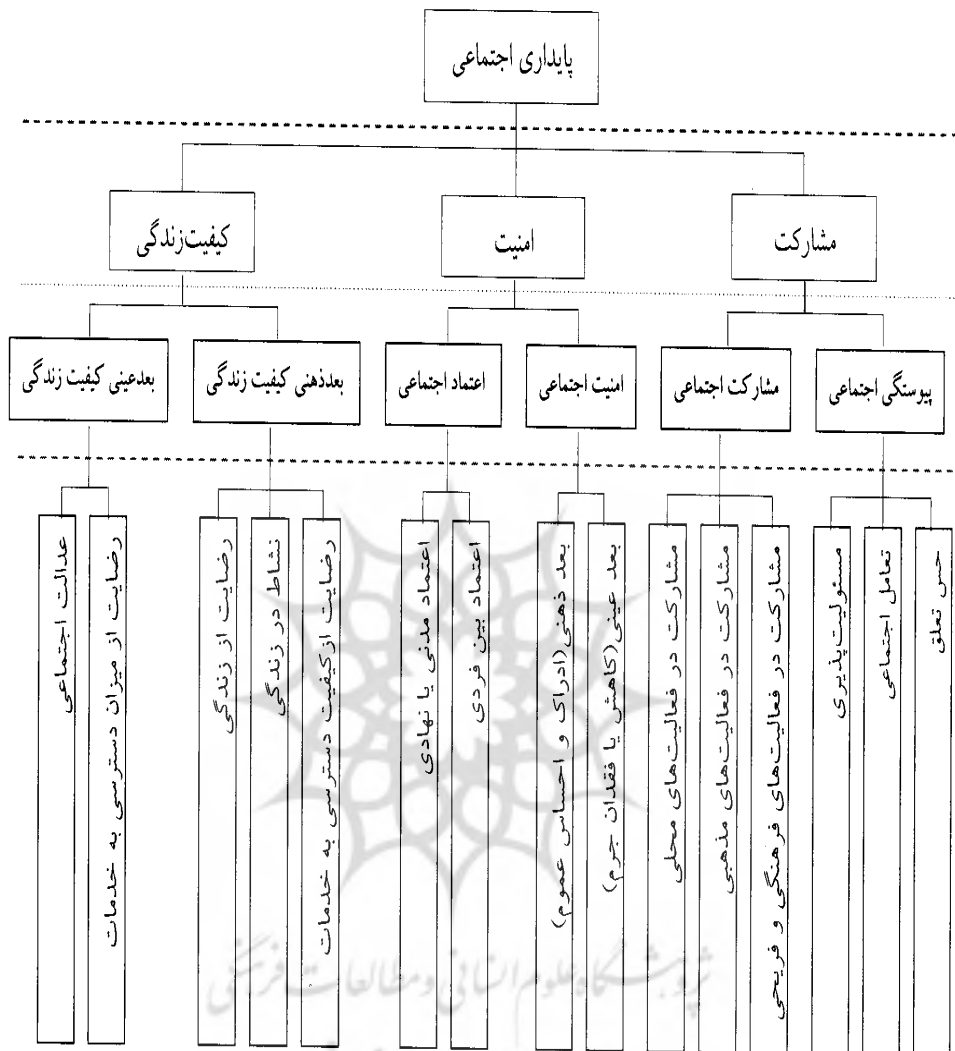 پایداری اجتماعی
مشارکت
امنیت
کیفیت‌زندگی
پیوستگی اجتماعی
مشارکت اجتماعی
امنیت اجتماعی
اعتماد اجتماعی
بعدذهنی کیفیت زندگی
بعدعینی کیفیت زندگی
حس تعلق
تعامل اجتماعی
مسئولیت‌پذیری
مشارکت در فعالیت‌های فرهنگی و فریحی
مشارکت در فعالیت‌های مذهبی
مشارکت در فعالیت‌های محلی
بعد عینی(کاهش یا فقدان جرم)
بعد ذهنی(ادراک و احساس عموم)
اعتماد بین فردی
اعتماد مدنی یا نهادی
رضایت ازکیفیت دسترسی به خدمات
نشاط در زندگی
رضایت از زندگی
رضایت از میزان دسترسی به خدمات
عدالت اجتماعی
پژوهشگاه علوم انسانی و مطالعات فرهنگی